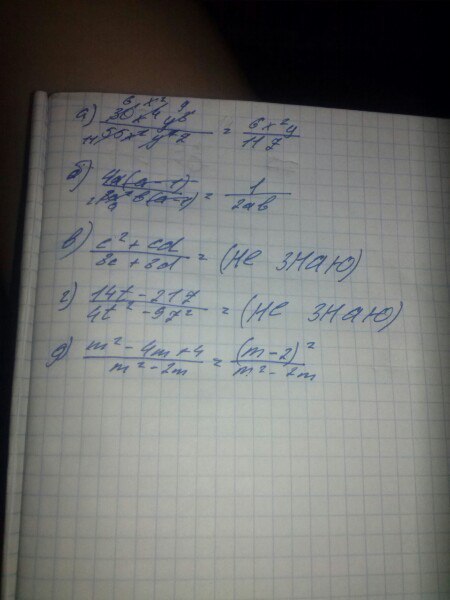 6 x² y
а) 30x⁴y⁶ / 11 55x²y⁵z = 6x²y / 11z
б) 4a(a-1) / 2 8a²b(a-1) = 1 / 2ab
в) c² + cd / 8c + 8d = (не знаю)
г) 14t - 21z / 4t² - 9z² = (не знаю)
д) m² - 4m + 4 / m² - 2m = (m-2)² / m² - 2m